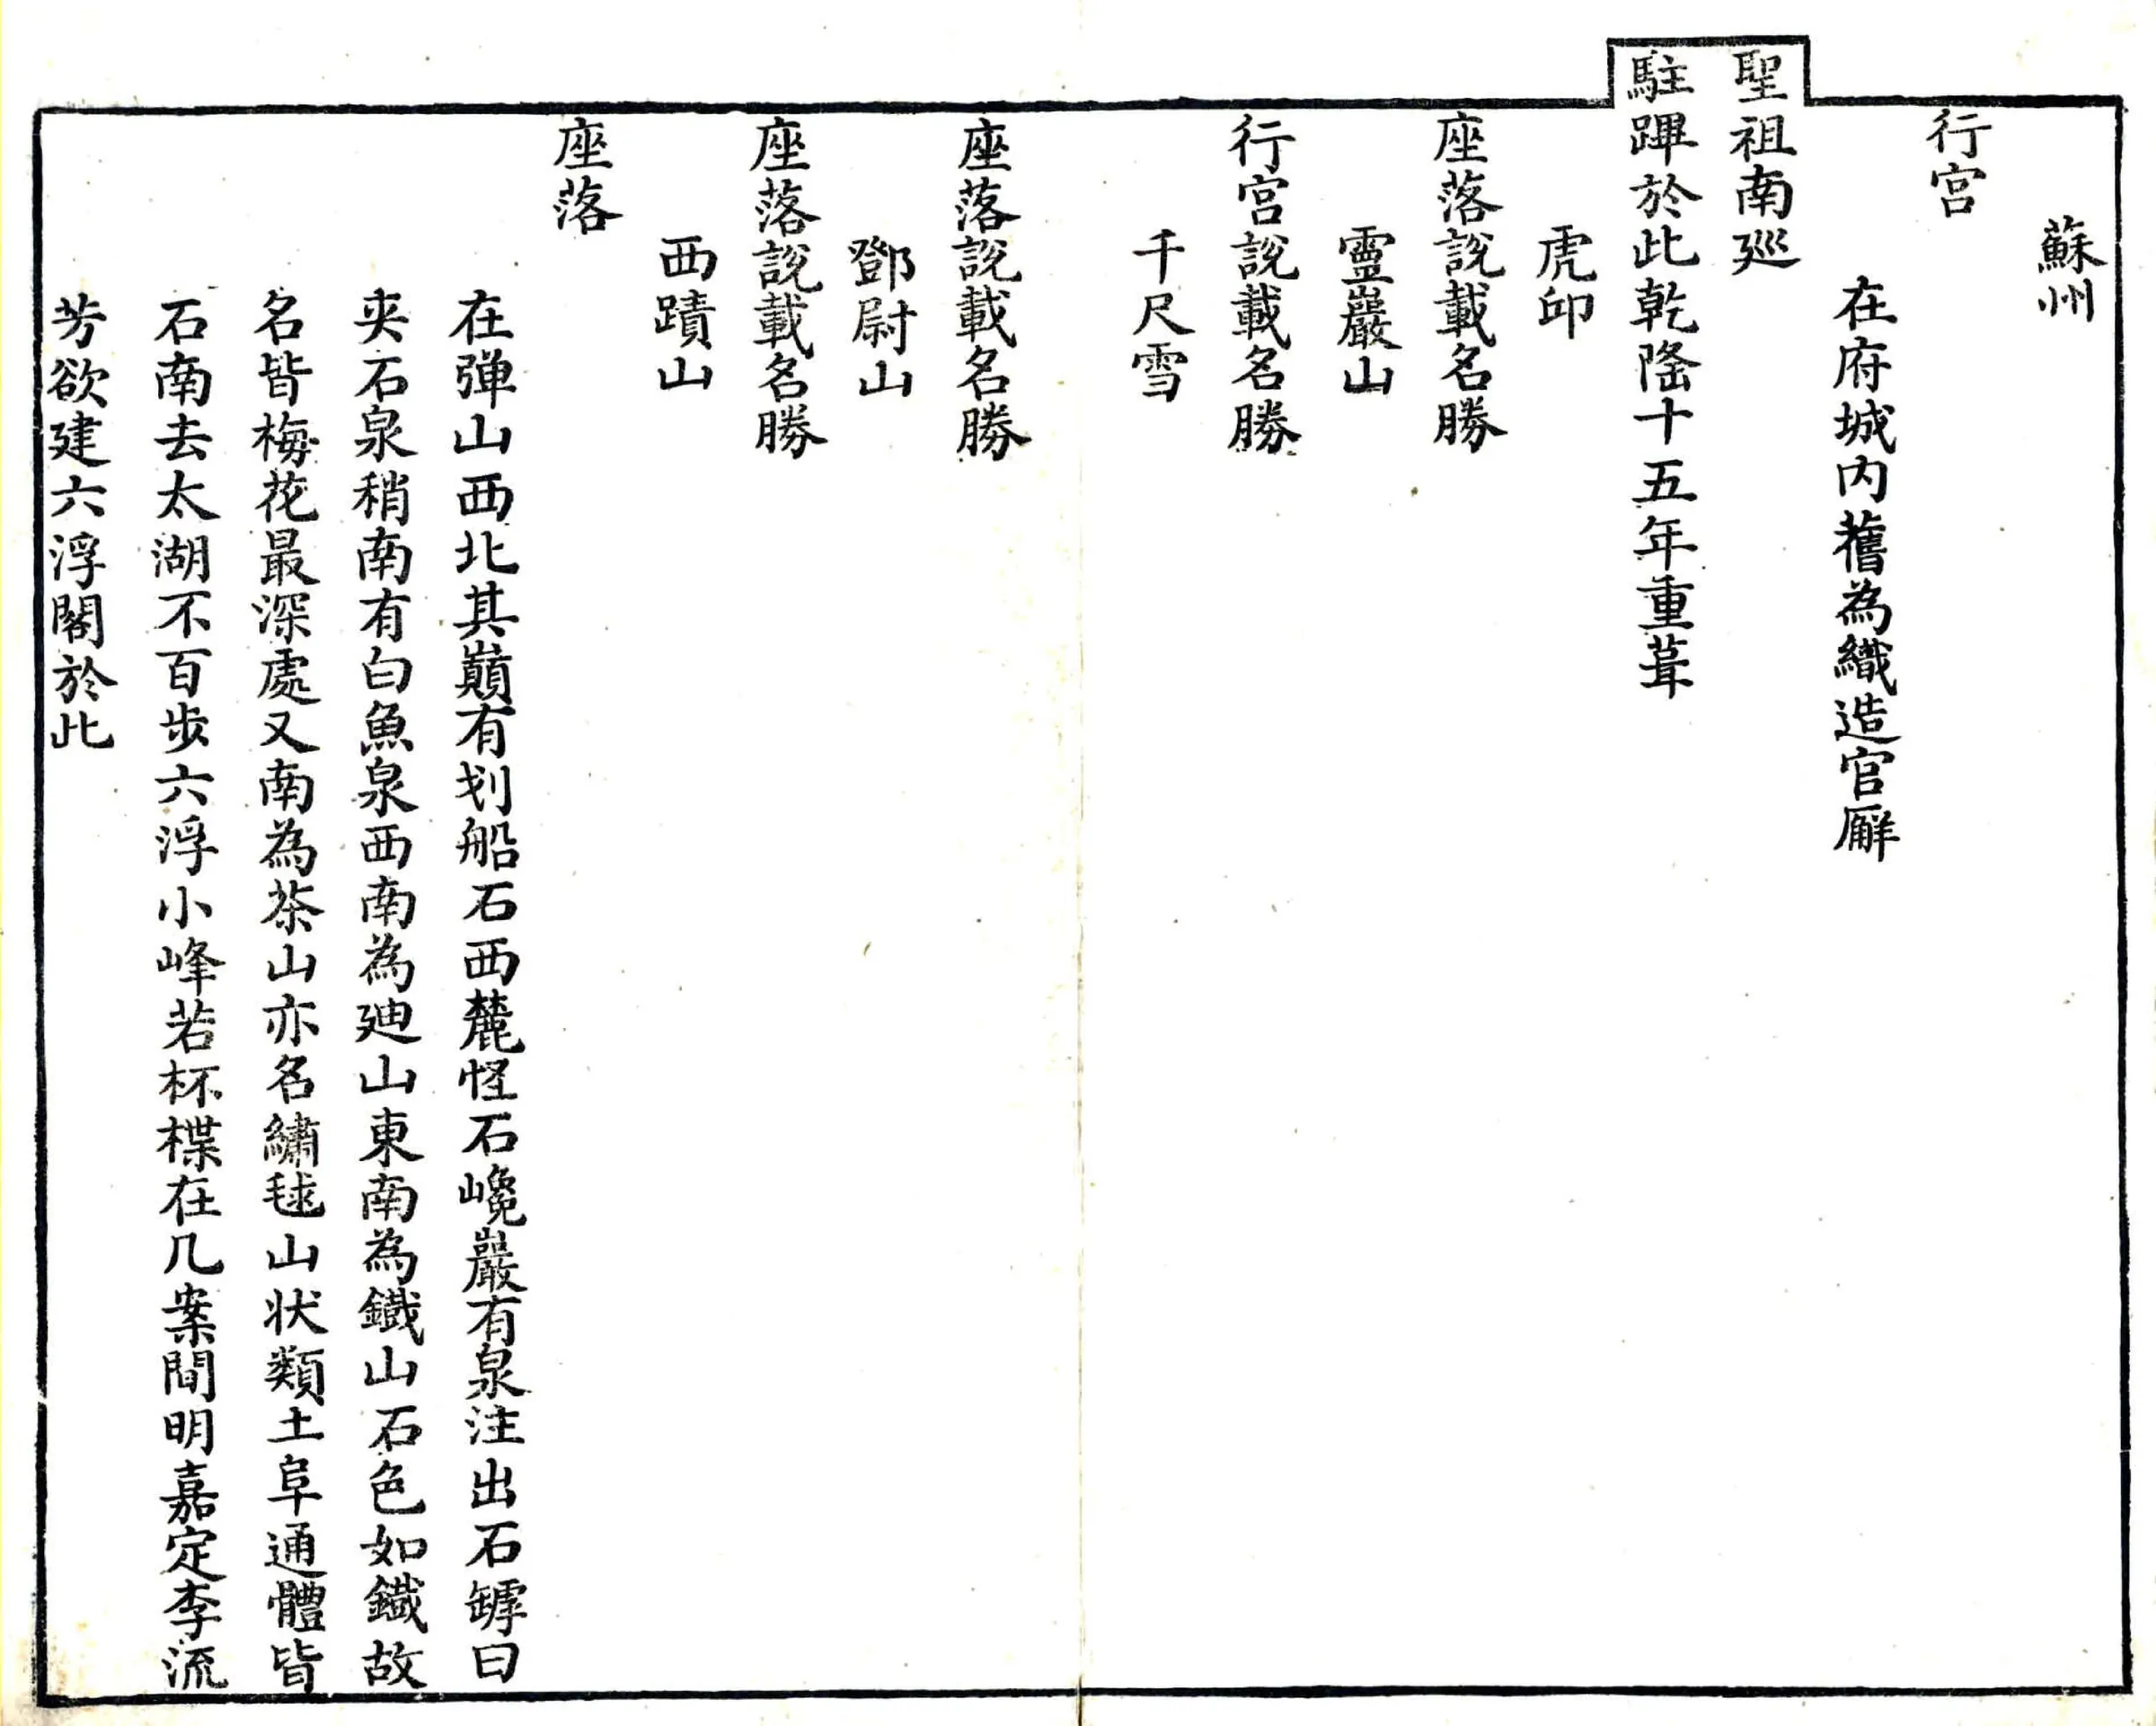 蘇州
行宮
在府城内舊為織造官廨
聖祖南廵
駐蹕於此乾隆十五年重葺
虎邱
座落說載名勝
靈巖山
行宮說載名勝
千尺雪
座落說載名勝
鄧尉山
座落說載名勝
西蹟山
座落
在弾山西北其巔有划船石西麓怪石巉巖有泉注出石罅曰
夾石泉稍南有白魚泉西南為廸山東南為鐵山石色如鐵故
名皆梅花最深處又南為茶山亦名繡毬山状類土阜通體皆
石南去太湖不百步六浮小峰若杯楪在几案間明嘉定李流
芳欲建六浮閣於此